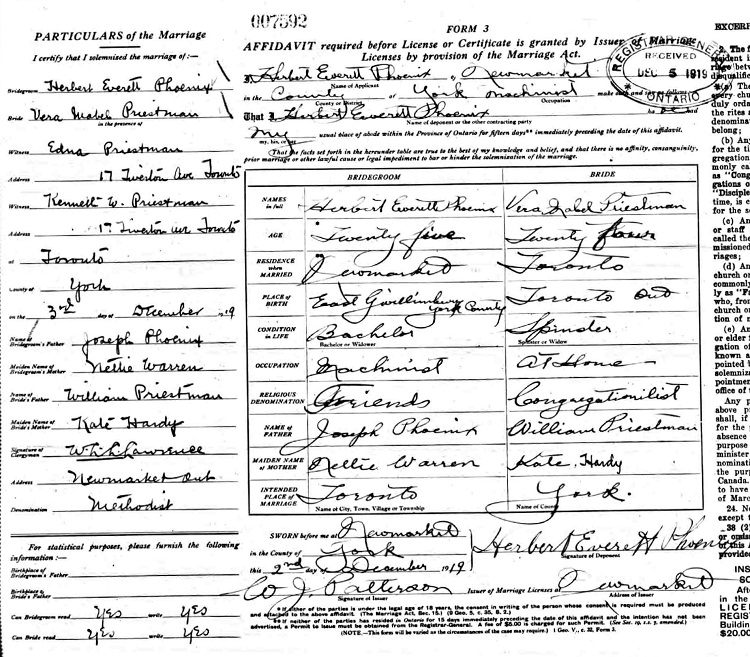 PARTICULARS of the Marriage
I certify that I solemnized the marriage of:—
Bridegroom Herbert Everett Phoenix
Bride Vera Mabel Priestman
in the presence of
Witness Edna Priestman
Address 17 Tiverton Ave Toronto
Witness Kenneth W. Priestman
Address 17 Tiverton Ave Toronto
at Toronto
County of York
on the 3rd day of December 1919
Name of Bridegroom's Father Joseph Phoenix
Maiden Name of Bridegroom's Mother Nettie Warren
Name of Bride's Father William Priestman
Maiden Name of Bride's Mother Kate Hardy
Signature of Clergyman
Address Newmarket Ont
Denomination Methodist
For statistical purposes, please furnish the following
information:—
Birthplace of Bridegroom's Father
Birthplace of Bride's Father
Can Bridegroom read yes write yes
Can Bride read yes write yes
007592
FORM 3
AFFIDAVIT required before License or Certificate is granted by Issuer of Marriage
Licenses by provision of the Marriage Act.
REGISTRAR GENERAL
RECEIVED
DEC 5 1919
ONTARIO
I, Herbert Everett Phoenix of Newmarket
Name of Applicant
in the County of York machinist make oath and say as follows
County or District Occupation
That I Herbert Everett Phoenix had
Name of deponent or the other contracting party
my usual place of abode within the Province of Ontario for fifteen days** immediately preceding the date of this affidavit.
my, his, or her
That the facts set forth in the hereunder table are true to the best of my knowledge and belief, and that there is no affinity, consanguinity,
prior marriage or other lawful cause or legal impediment to bar or hinder the solemnization of the marriage.
BRIDEGROOM BRIDE
NAMES in full Herbert Everett Phoenix Vera Mabel Priestman
AGE Twenty five Twenty four
RESIDENCE WHEN MARRIED Newmarket Toronto
PLACE OF BIRTH East Gwillimbury York County Toronto Ont
CONDITION IN LIFE Bachelor Spinster
Bachelor or Widower Spinster or Widow
OCCUPATION Machinist At Home
RELIGIOUS DENOMINATION Friends Congregationilist
NAME OF FATHER Joseph Phoenix William Priestman
MAIDEN NAME OF MOTHER Nellie Warren Kate Hardy
INTENDED PLACE OF MARRIAGE Toronto York.
Name of City, Town, Village or Township Name of County
SWORN before me at Newmarket
in the County of York
this 2nd day of December 1919
Herbert Everett Phoenix
Signature of Deponent
Patterson Issuer of Marriage Licenses at Newmarket
Signature of Issuer Address of Issuer
*If either of the parties is under the legal age of 18 years, the consent in writing of the person whose consent is required must be produced
and attached to the above affidavit. (The Marriage Act, Sec. 15.) (9 Geo. 5, c. 35, S. 2.)
**If neither of the parties has resided in Ontario for 15 days immediately preceding the date of this affidavit and the intention has not been
advertised, a Permit to issue must be obtained from the Registrar-General. A fee of $5.00 is charged for such Permit. (See Sec. 19, s.s. 5, amended.)
(NOTE.—This form will be varied as the circumstances of the case may require.) 1 Geo. V., c. 32, Form 3.
EXCERP